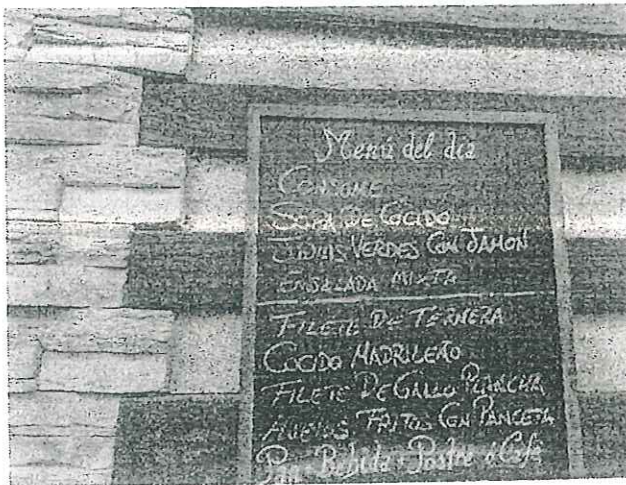 Menú del día
CONSOME
SOPA DE COCIDO
JUDIAS VERDES CON JAMON
ENSALADA MIXTA
FILETE DE TERNERA
COCIDO MADRILEÑO
FILETE DE GALLO PLANCHA
HUEVOS FRITOS CON PANCETA
Pan + Bebida + Postre ó Café